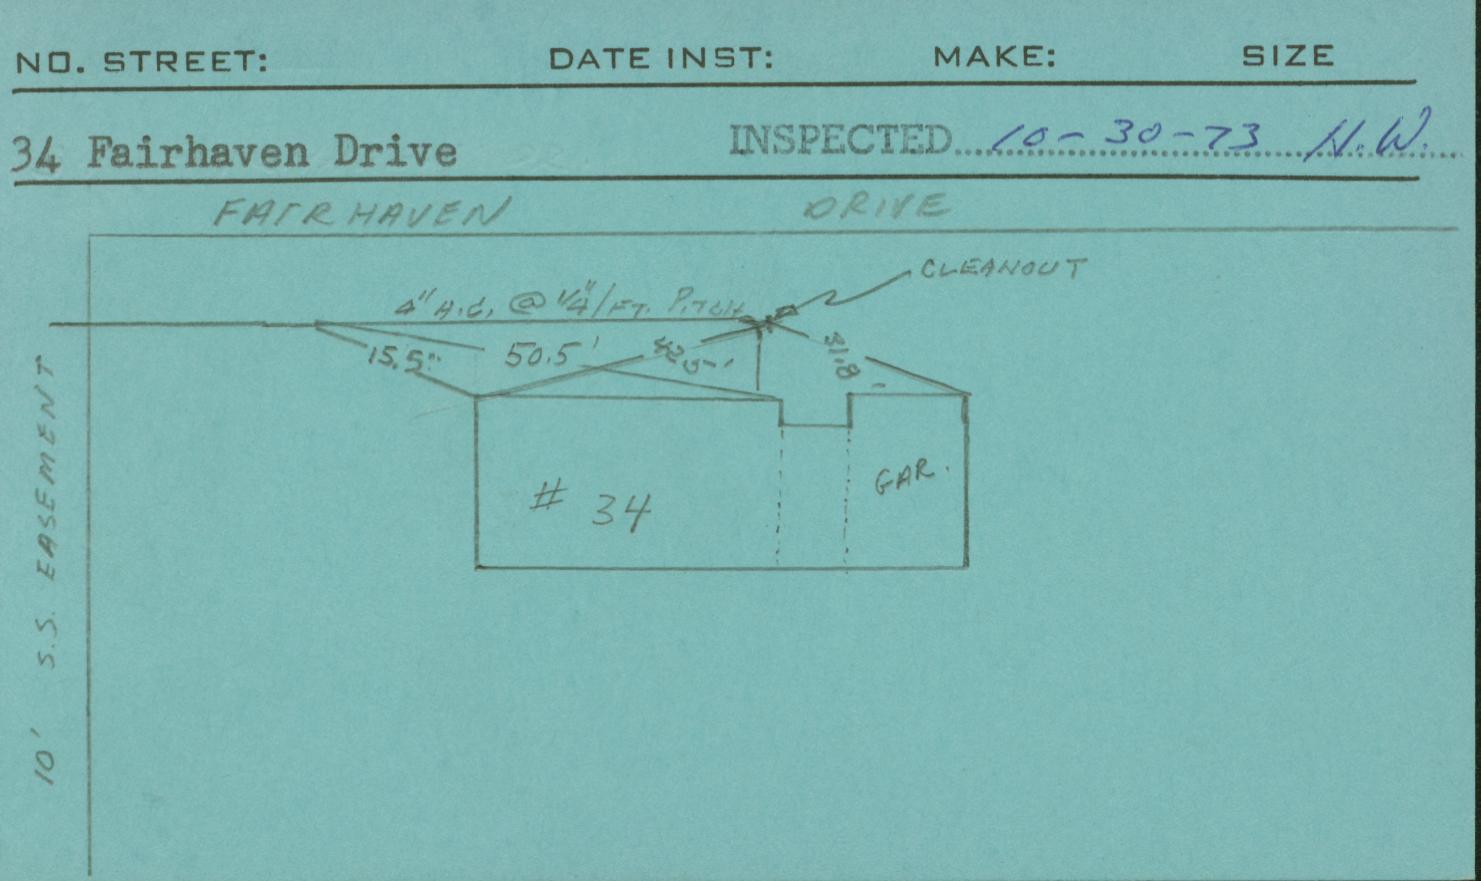 NO. STREET: DATE INST: MAKE: SIZE
34 Fairhaven Drive INSPECTED 10-30-73 H.W.
FAIRHAVEN DRIVE
CLEANOUT
4" A.C. @ 1/4"/FT. PITCH
15.5' 50.5' 42.5' 31.8'
# 34
GAR.
10' S.S. EASEMENT